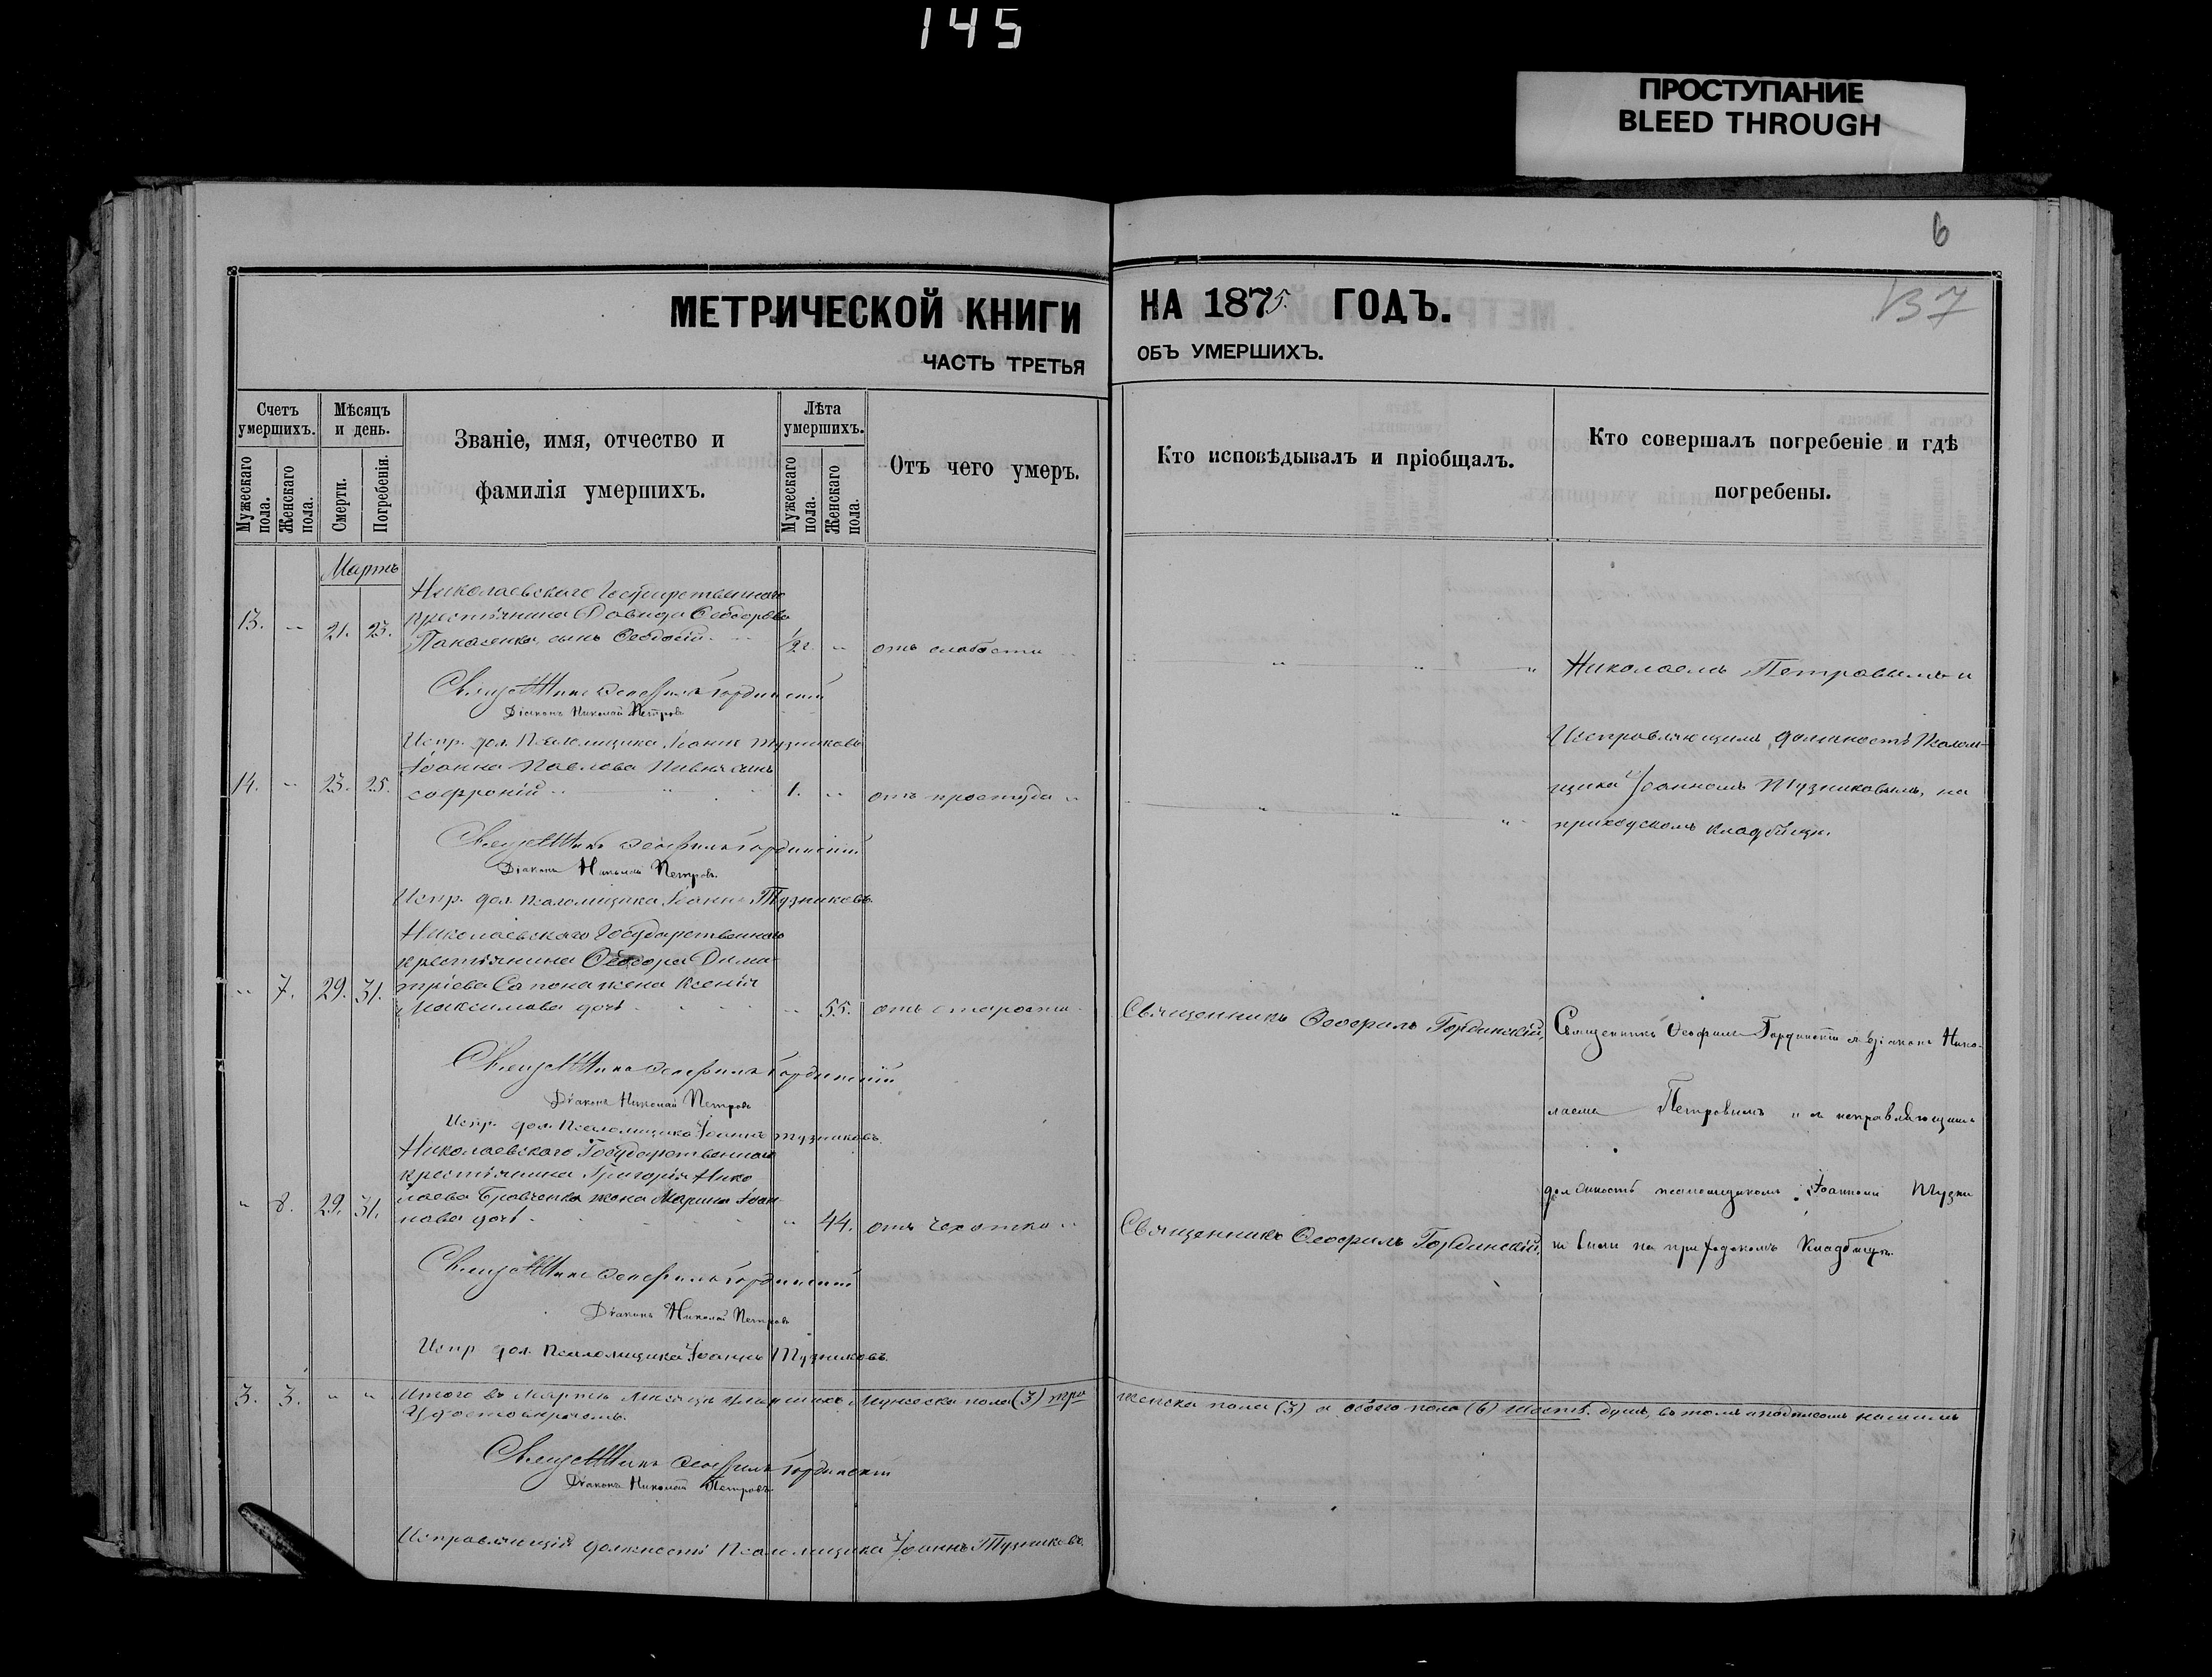 145
ПРОСТУПАНИЕ
BLEED THROUGH
6
137
МЕТРИЧЕСКОЙ КНИГИ НА 1875. ГОДЪ.
ЧАСТЬ ТРЕТЬЯ ОБЪ УМЕРШИХЪ.
Счетъ умершихъ.
Мужескаго пола.
Женскаго пола.
Мѣсяцъ и день.
Смерти.
Погребенія.
Званіе, имя, отчество и
фамилія умершихъ.
Лѣта умершихъ.
Мужескаго пола.
Женскаго пола.
Отъ чего умеръ.
Кто исповѣдывалъ и пріобщалъ.
Кто совершалъ погребеніе и гдѣ
погребены.
Мартъ
Николаевского Государственного
крестьянина Давида Ѳеодорова
13. 21. 23. сынъ Ѳеодосій 1/2 г. отъ слабости
Николаемъ Петровымъ и
Священникъ Ѳеофилъ Гординскій
Діаконъ Николай Петровъ
Испр. дол. Псаломщика Іоаннъ Тузниковъ
Исправляющимъ должность Псалом-
Іоанна Павлова сынъ
14. 23. 25. Софроній 1. отъ простуды
щика Іоанномъ Тузниковымъ, на
приходскомъ кладбищѣ.
Священникъ Ѳеофилъ Гординскій
Діаконъ Николай Петровъ.
Испр. дол. Псаломщика Іоаннъ Тузниковъ
Николаевского Государственного
крестьянина Ѳеодора Дими-
7. 29. 31. тріева Сапона жена Ксенія
Максимова дочь 55. отъ старости
Священникъ Ѳеофилъ Гординскій,
Священникъ Ѳеофилъ Гординскій съ Діакономъ Нико-
Священникъ Ѳеофилъ Гординскій
Діаконъ Николай Петровъ
лаемъ Петровымъ и исправляющимъ
Испр. дол. Псаломщика Іоаннъ Тузниковъ.
Николаевского Государственного
крестьянина Григорія Нико
8. 29. 31. лаева Бровченко жена Марина Іоан-
нова дочь 44. отъ чахотки
должность псаломщикомъ Іоанномъ Тузни
Священникъ Ѳеофилъ Гординскій.
ковымъ на приходскомъ Кладбищѣ.
Священникъ Ѳеофилъ Гординскій
Діаконъ Николай Петровъ
Испр дол. Псаломщика Іоаннъ Тузниковъ.
3. 3. Итого въ Мартѣ Мѣсяцѣ умершихъ мужеска пола (3) три женска пола (3) а обоего пола (6) шесть душъ, въ томъ и подписомъ нашимъ
Удостовѣряемъ.
Священникъ Ѳеофилъ Гординскій
Діаконъ Николай Петровъ
Исправляющій должность Псаломщика Іоаннъ Тузниковъ